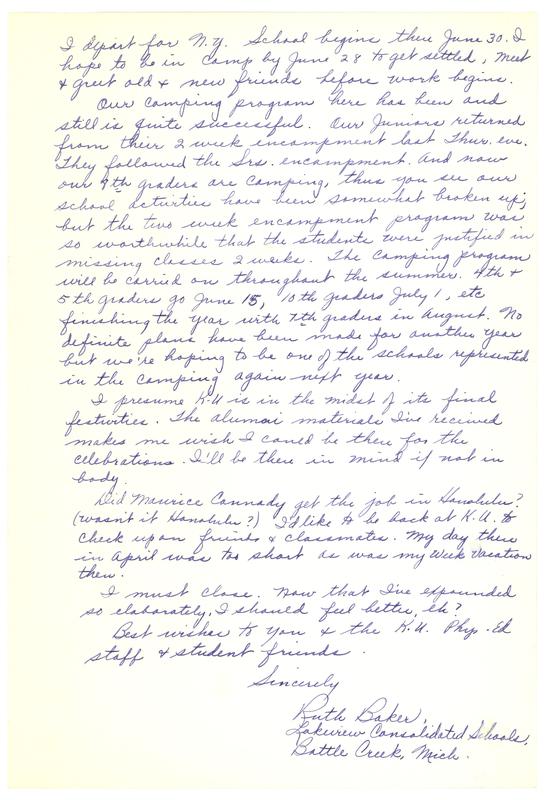 I depart for N.Y. School begins there June 30. I
hope to be in Camp by June 28 to get settled, meet
& greet old & new friends before work begins.
Our camping program here has been and
still is quite successful. Our Juniors returned
from their 2 week encampment last Thur. eve.
They followed the Srs. encampment. And now
our 9th graders are camping, thus you see our
school activities have been somewhat broken up,
but the two week encampment program was
so worthwhile that the students were justified in
missing classes 2 weeks. The camping program
will be carried on throughout the summer. 4th &
5th graders go June 15, 10th graders July 1, etc
finishing the year with 7th graders in August. No
definite plans have been made for another year
but we're hoping to be one of the schools represented
in the camping again next year.
I presume K-U is in the midst of its final
festivities. The alumni materials I've received
makes me wish I could be there for the
celebrations. I'll be there in mind if not in
body.
Did Maurice Cannady get the job in Honolulu?
(wasn't it Honolulu?) I'd like to be back at K.U. to
check upon friends & classmates. My day there
in April was too short as was my week vacation
then.
I must close. Now that I've expounded
so elaborately, I should feel better, eh?
Best wishes to you & the K.U. Phys. Ed
staff & student friends.
Sincerely
Ruth Baker,
Lakeview Consolidated Schools,
Battle Creek, Mich.